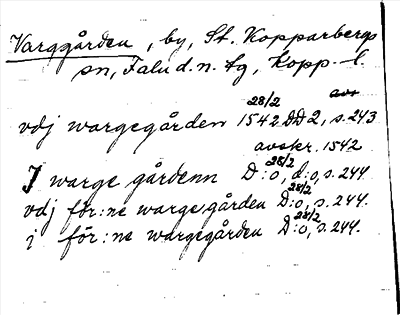 Varggården, by, St. Kopparbergs
sn, Falu d. n. tg, Kopp. l.
avs
vdj wargegården 28/2 1542 DD2, s. 243
avskr. 1542
J warge gårdenn D:o, 28/2 d:o, s. 244
vdj för:ne wargegården D:o, 28/2 s. 244.
i för:ne wargegården D:o, 28/2 s. 244.